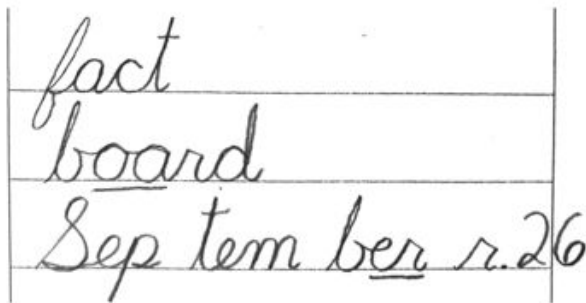 fact
board
Sep tem ber r.26